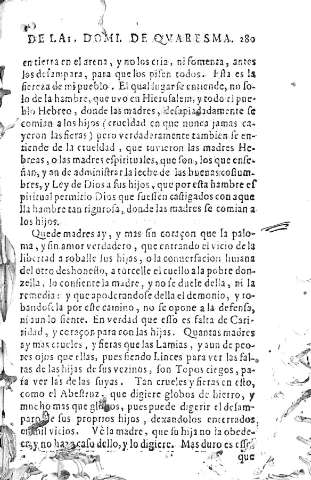 DE LA 1. DOMI. DE QVARESMA. 280
en tierra en el arena, y no los cria, ni fomenta, antes
los desampara, para que los pisen todos. Esta es la
fiereza de mi pueblo. El qual lugar se entiende, no so-
lo de la hambre, que uvo en Hierusalem, y todo el pue-
blo Hebreo, donde las madres, desapiadadamente se
comian a los hijos (crueldad en que nunca jamas ca-
yeron las fieras) pero verdaderamente también se en-
tiende de la crueldad, que tuvieron las madres He-
breas, o las madres espirituales, que son, los que ense-
ñan, y an de administrar la leche de las buenas costum-
bres, y Léy de Dios a sus hijos, que por esta hambre es
piritual permitio Dios que fuessen castigados con aque
lla hambre tan rigurosa, donde las madres se comian a
los hijos.
Que de madres ay, y mas sin coraçon que la palo-
ma, y sin amor verdadero, que entrando el vicio de la
libertad a roballe sus hijos, o la conversacion liviana
del otro deshonesto, a torcelle el cuello a la pobre don-
zella, lo consiente la madre, y no se duele della, ni la
remedia: y que apoderandose della el demonio, y ro-
bandosela por este camino, no se opone a la defensa,
ni aun lo siente. En verdad que esso es falta de Cari-
ridad, y coraçon para con las hijas. Quantas madres
ay mas crueles, y fieras que las Lamias, y aun de peo-
res ojos que ellas, pues siendo Linces para ver las fal-
tas de las hijas de sus vezinos, son Topos ciegos, pa-
ra ver las de las suyas. Tan crueles y fieras en esto,
como el Abestruz, que digiere globos de hierro, y
mucho mas que globos, pues puede digerir el desam-
paro de sus proprios hijos, dexandolos encerrados
en mil vicios. Vè la madre, que su hija no la obede-
ce, y no haze caso dello, y lo digiere. Mas duro es esso
que